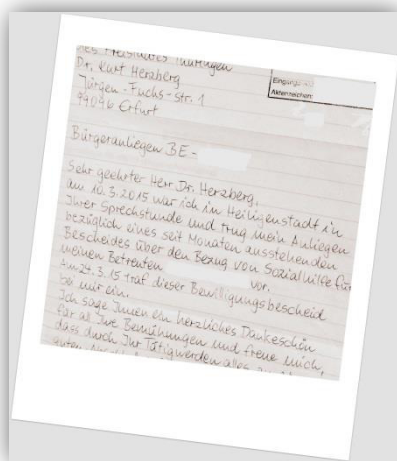 des Freistaates Thüringen
Dr. Kurt Herzberg
Jürgen-Fuchs-Str. 1
99096 Erfurt
Eingangs
Aktenzeichen:
Bürgeranliegen BE-
Sehr geehrter Herr Dr. Herzberg,
am 10.3.2015 war ich in Heiligenstadt in
Ihrer Sprechstunde und trug mein Anliegen
bezüglich eines seit Monaten ausstehenden
Bescheides über den Bezug von Sozialhilfe für
meinen Betreuten vor.
Am 24.3.15 traf dieser Bewilligungsbescheid
bei mir ein.
Ich sage Ihnen ein herzliches Dankeschön
für all Ihre Bemühungen und freue mich,
dass durch Ihr Tätigwerden alles